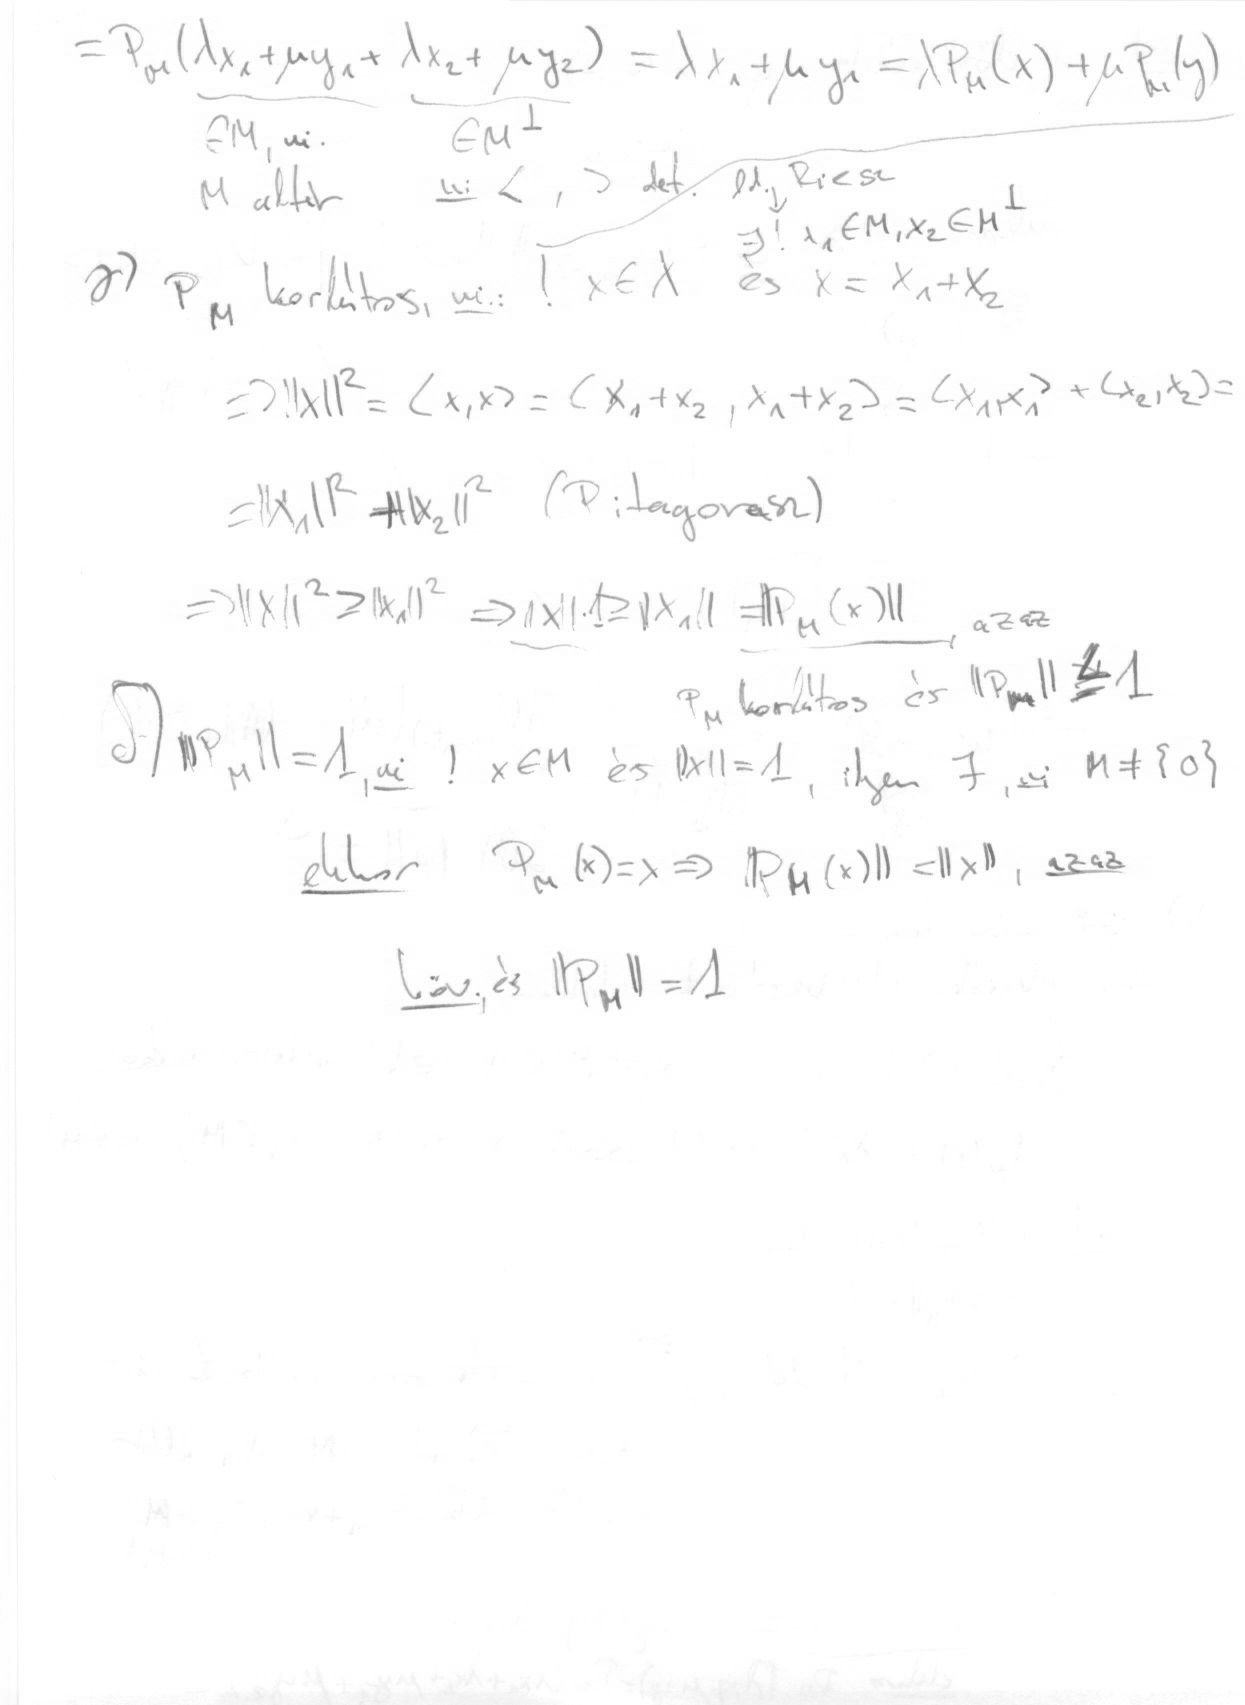 = P_M(λx₁+μy₁+ λx₂+ μy₂) = λx₁+μy₁ = λP_M(x) + μP_M(y)
∈M, ui. ∈M^⊥
M altér ui < , > def. ld. Riesz
∃! x₁∈M, x₂∈M^⊥
γ) P_M korlátos, ui.: ! x∈X és x = x₁+x₂
⇒ ||x||² = <x,x> = <x₁+x₂, x₁+x₂> = <x₁,x₁> + <x₂,x₂> =
= ||x₁||² + ||x₂||² (Pitagorasz)
⇒ ||x||² ≥ ||x₁||² ⇒ ||x||·1 ≥ ||x₁|| = ||P_M(x)||, azaz
P_M korlátos és ||P_M|| ≤ 1
δ) ||P_M|| = 1, ui ! x∈M és ||x|| = 1, ilyen ∃, ui M ≠ {0}
ekkor P_M(x) = x ⇒ ||P_M(x)|| = ||x||, azaz
köv. és ||P_M|| = 1